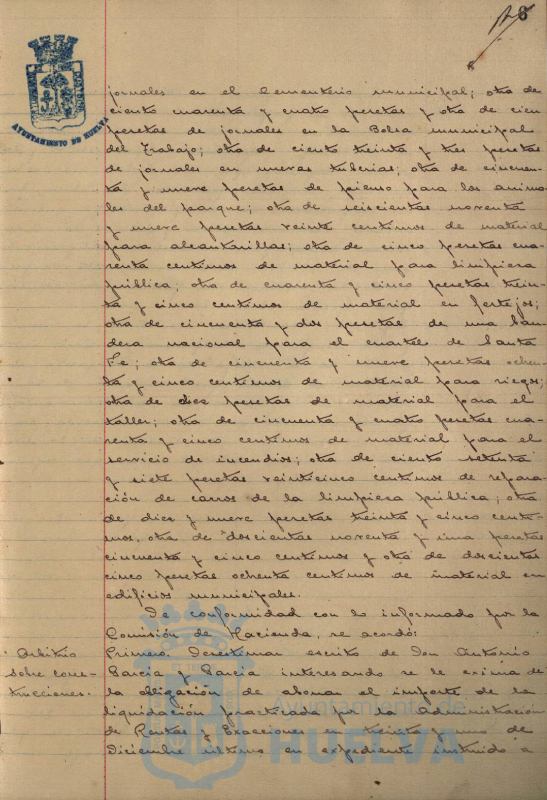 8
AYUNTAMIENTO DE HUELVA
jornales en el Cementerio municipal; otra de
ciento cuarenta y cuatro pesetas y otra de cien
pesetas de jornales en la Bolsa municipal
del Trabajo; otra de ciento treinta y tres pesetas
de jornales en nuevas tuberias; otra de cincuen-
ta y nueve pesetas de pienso para los anima-
les del parque; otra de seiscientas noventa
y nueve pesetas veinte centimos de material
para alcantarillas; otra de cinco pesetas cua-
renta centimos de material para limpieza
pública; otra de cuarenta y cinco pesetas trein-
ta y cinco centimos de material en festejos;
otra de cincuenta y dos pesetas de una ban-
dera nacional para el cuartel de Santa
Fe; otra de cincuenta y nueve pesetas ochen-
ta y cinco centimos de material para riegos;
otra de diez pesetas de material para el
taller; otra de cincuenta y cuatro pesetas cua-
renta y cinco centimos de material para el
servicio de incendios; otra de ciento setenta
y siete pesetas veinticinco centimos de repara-
ción de carros de la limpieza pública; otra
de diez y nueve pesetas treinta y cinco centi-
mos, otra de doscientas noventa y una pesetas
cincuenta y cinco centimos y otra de doscientas
cinco pesetas ochenta centimos de material en
edificios municipales.
De conformidad con lo informado por la
Comisión de Hacienda, se acordó:
Arbitrio
sobre cons-
trucciones.
Primero: Desestimar escrito de Don Antonio
Garcia y Garcia interesando se le exima de
la obligación de abonar el importe de la
liquidación practicada por la Administración
de Rentas y Exacciones en treinta y uno de
Diciembre último en expediente instruido a
Ayuntamiento de
HUELVA